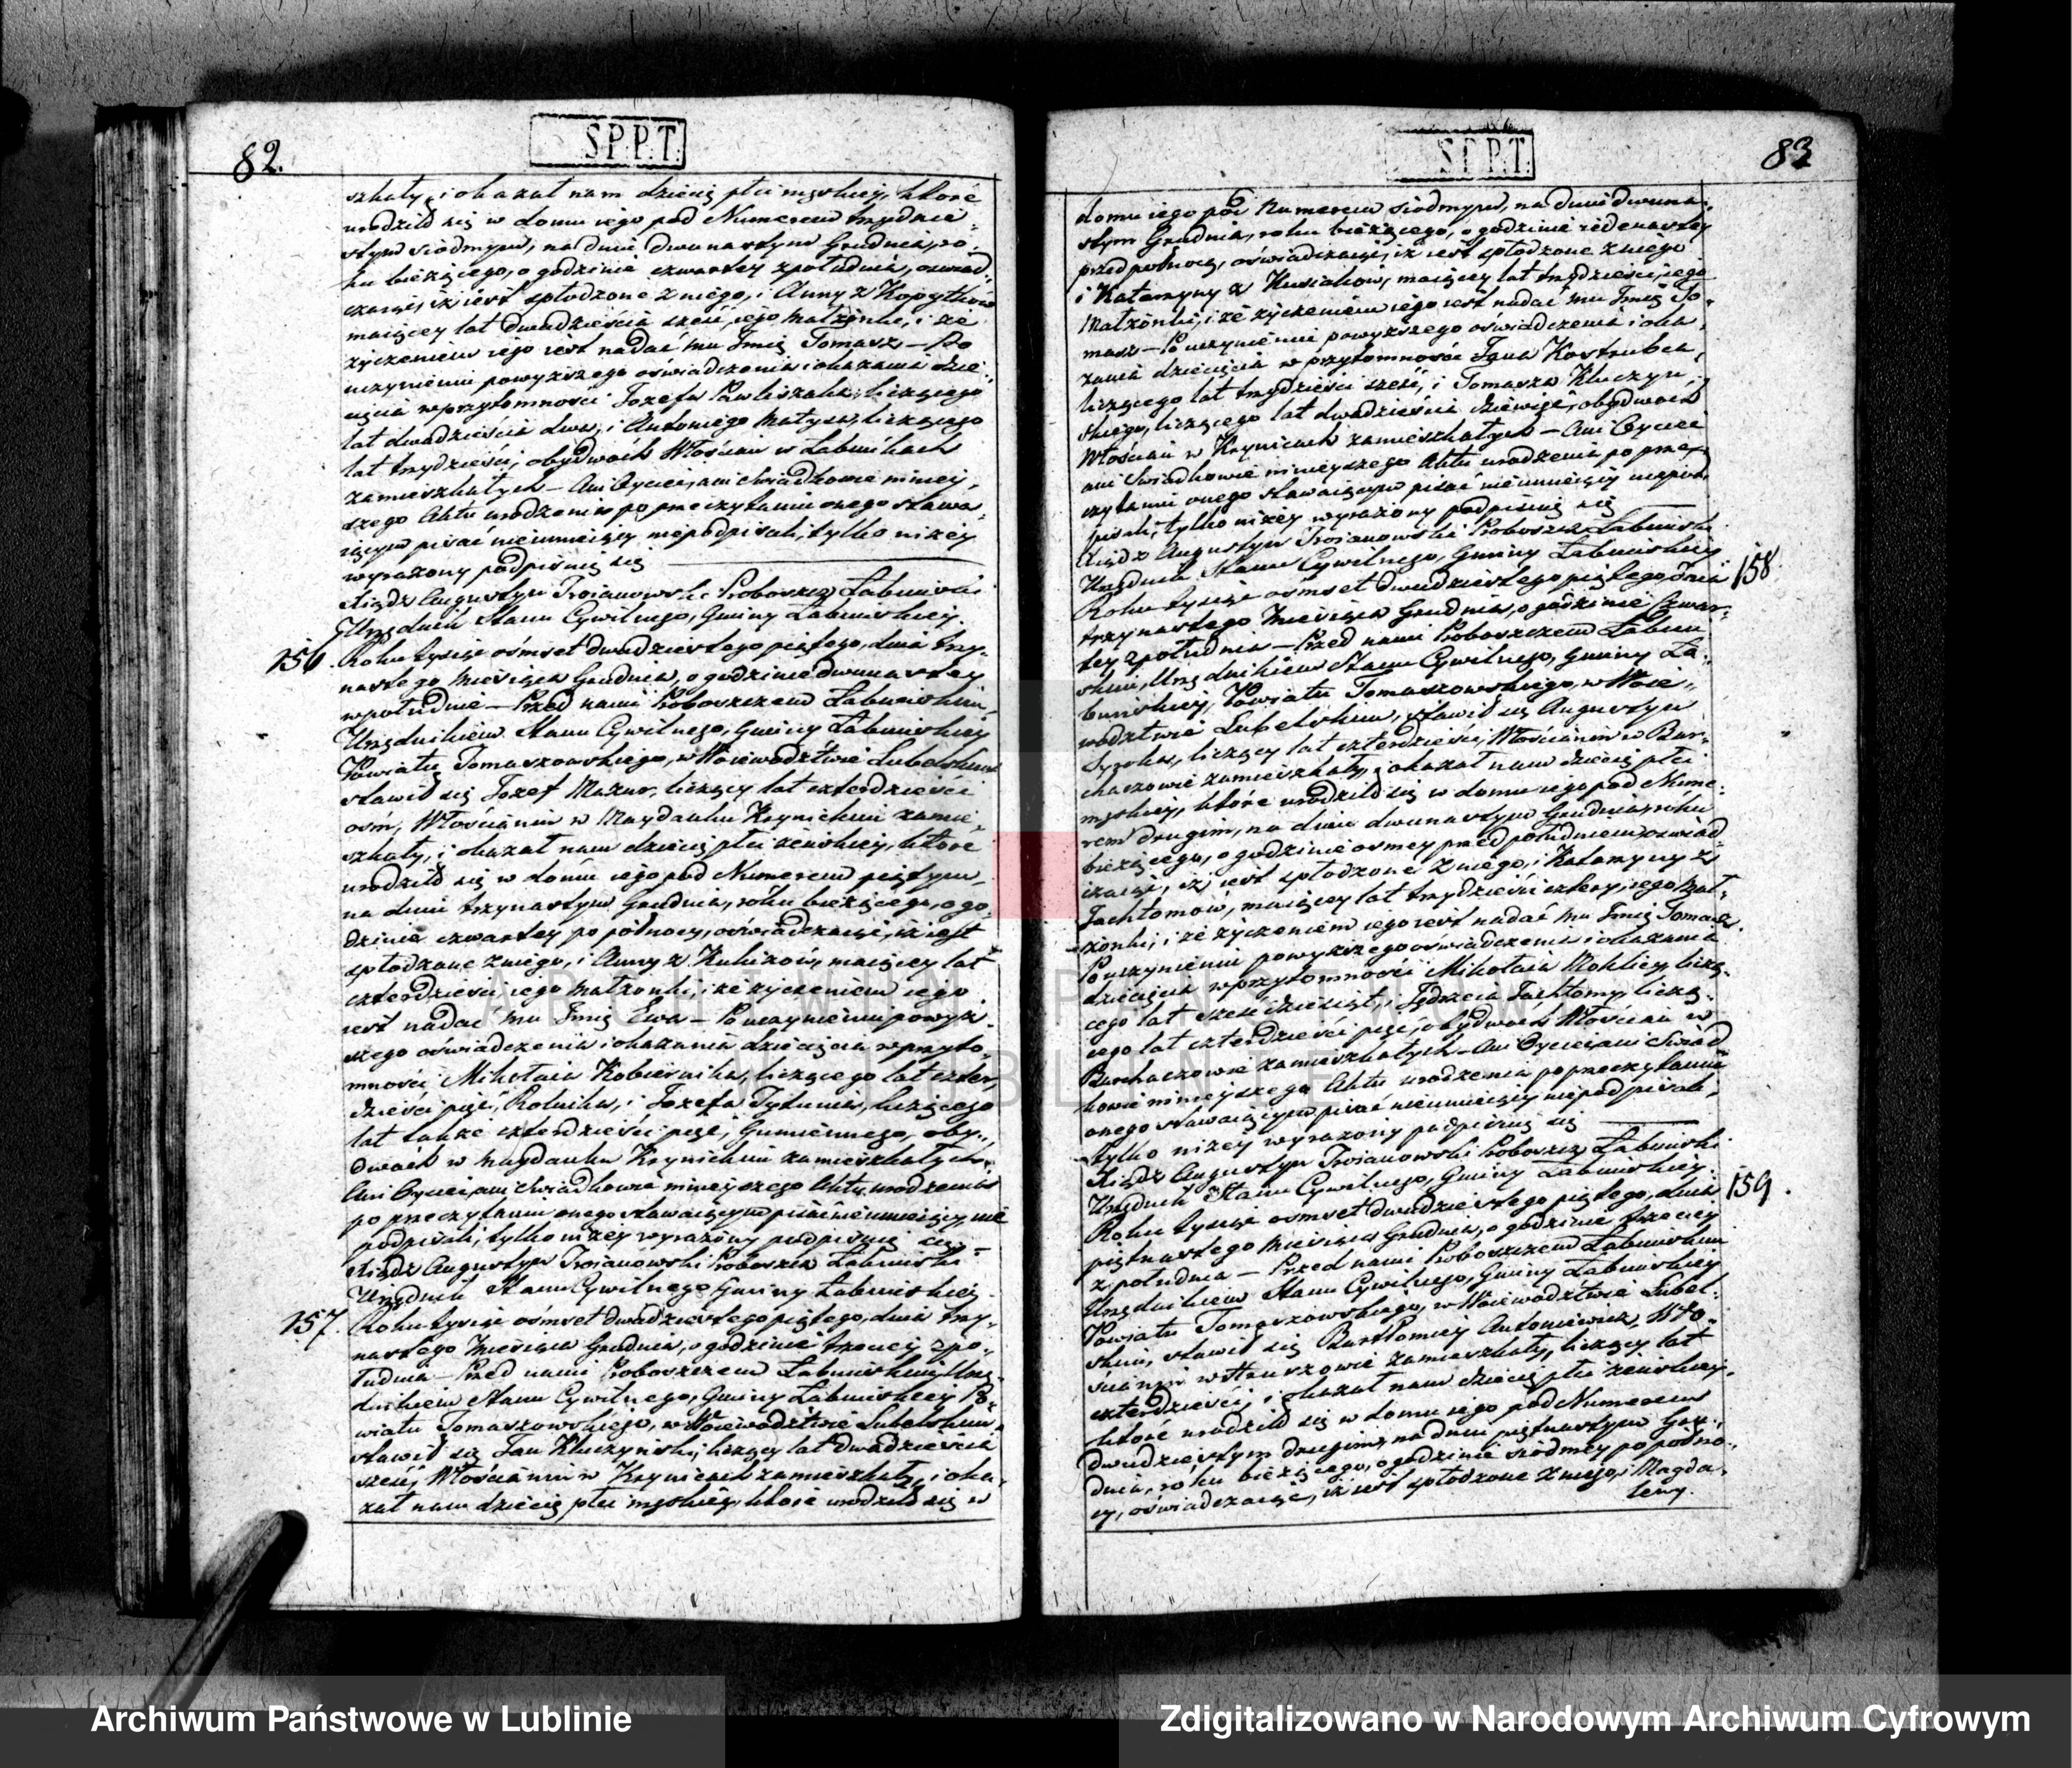 82.
SPPT.
szkały, i okazał nam dziecię płci męskiey, które
urodziło się w domu iego pod Numerem trzydzie-
stym siódmym, na dniu dwunastym Grudnia, ro-
ku bieżącego, o godzinie czwartey z południa, oswiad-
czaiąc, iż iest spłodzone z niego, i Anny z Kopytków
maiącey lat dwadzieścia sześć, iego małżonki, i że
życzeniem iego iest nadać mu Imię Tomasz — Po
uczynieniu powyższego oswiadczenia i okazania dzie-
cięcia w przytomności Jozefa Pawliszaka, liczącego
lat dwadzieścia dwa, i Antoniego Matysa, liczącego
lat trzydzieści, obydwóch Włościan w Łabuńkach
zamieszkałych — Ani Oyciec, ani Swiadkowie niniey-
szego Aktu urodzenia po przeczytaniu onego stawa-
iącym pisać nieumieiący niepodpisali, tylko niżey
wyrażony podpisuię się
Xiądz Augustyn Troianowski Proboszcz Łabuński
Urzędnik Stanu Cywilnego, Gminy Łabuńskiey.
156. Roku tysiąc ośmset dwudziestego piątego, dnia trzy-
nastego Miesiąca Grudnia, o godzinie dwunastey
w południe — Przed nami Proboszczem Łabuńskim
Urzędnikiem Stanu Cywilnego, Gminy Łabuńskiey
Powiatu Tomaszowskiego, w Woiewództwie Lubelskim
stawił się Jozef Mazur, liczący lat czterdzieści
ośm, Włościanin w Maydanku Krynickim zamie-
szkały, i okazał nam dziecię płci żeńskiey, które
urodziło się w domu iego pod Numerem piątym
na dniu trzynastym Grudnia, roku bieżącego, o go-
dzinie czwartey po północy, oświadczaiąc, iż iest
spłodzone z niego, i Anny z Kubizów, maiącey lat
czterdzieści iego małżonki, i że życzeniem iego
iest nadać mu Imię Ewa — Po uczynieniu powyż-
szego oświadczenia i okazania dziecięcia w przyto-
mności Mikołaia Kobiernika, liczącego lat czter-
dzieści pięć, Rolnika, i Jozefa Tytunia, liczącego
lat także czterdzieści pięć, Gumiennego, oby-
dwóch w Maydanku Krynickim zamieszkałych —
Ani Oyciec, ani Swiadkowie ninieyszego Aktu urodzenia
po przeczytaniu onego stawaiącym pisać nieumieiący, nie
podpisali, tylko niżey wyrażony podpisuię się —
Xiądz Augustyn Troianowski Proboszcz Łabuński
Urzędnik Stanu Cywilnego Gminy Łabuńskiey
157. Roku tysiąc ośmset dwudziestego piątego, dnia trzy-
nastego Miesiąca Grudnia, o godzinie trzeciey z po-
łudnia — Przed nami Proboszczem Łabuńskim, Urzę-
dnikiem Stanu Cywilnego, Gminy Łabuńskiey Po-
wiatu Tomaszowskiego, w Woiewództwie Lubelskim
stawił się Jan Kluczyński, liczący lat dwadzieścia
sześć, Włościanin w Krynicach zamieszkały, i oka-
zał nam dziecię płci męskiey, które urodziło się w
83
SPPT.
domu iego pod Numerem siódmym, na dniu dwuna-
stym Grudnia, roku bieżącego, o godzinie iedenastey
przed północą, oświadczaiąc, iż iest spłodzone z niego
i Katarzyny z Kusiaków, maiącey lat trzydzieści, iego
Małżonki, i że życzeniem iego iest nadać mu Imię To-
masz — Po uczynieniu powyższego oświadczenia i oka-
zania dziecięcia w przytomności Jana Kostrubca,
liczącego lat trzydzieści sześć, i Tomasza Kluczyń-
skiego, liczącego lat dwadzieścia dziewięć, obydwóch
Włościan w Krynicach zamieszkałych — Ani Oyciec
ani Swiadkowie ninieyszego Aktu urodzenia po prze-
czytaniu onego stawaiącym pisać nieumieiący niepod-
pisali, tylko niżey wyrażony podpisuię się
Xiądz Augustyn Troianowski Proboszcz Łabuński
Urzędnik Stanu Cywilnego, Gminy Łabuńskiey
158. Roku tysiąc ośmset dwudziestego piątego, dnia
trzynastego Miesiąca Grudnia, o godzinie czwar-
tey z południa — Przed nami Proboszczem Łabuń-
skim, Urzędnikiem Stanu Cywilnego, Gminy Ła-
buńskiey, Powiatu Tomaszowskiego, w Woie-
wództwie Lubelskim, stawił się Augustyn
Syroka, liczący lat czterdzieści, Włościanin w Bar-
chaczowie zamieszkały, i okazał nam dziecię płci
męskiey, które urodziło się w domu iego pod Nume-
rem drugim, na dniu dwunastym Grudnia, roku
bieżącego, o godzinie osmey przed południem, oswiad-
czaiąc, iż iest spłodzone z niego, i Katarzyny z
Jachtomów, maiącey lat trzydzieści cztery, iego Mał-
żonki, i że życzeniem iego iest nadać mu Imię Tomasz.
Po uczynieniu powyższego oświadczenia i okazania
dziecięcia w przytomności Mikołaia Mokliey, liczą-
cego lat sześćdziesiąt, i Jędrzeia Jachtomy, liczą-
cego lat czterdzieści pięć, obydwóch Włościan w
Barchaczowie zamieszkałych — Ani Oyciec, ani Swiad-
kowie ninieyszego Aktu urodzenia po przeczytaniu
onego stawaiącym pisać nieumieiący niepodpisali,
tylko niżey wyrażony podpisuię się
Xiądz Augustyn Troianowski Proboszcz Łabuński
Urzędnik Stanu Cywilnego, Gminy Łabuńskiey.
159. Roku tysiąc ośmset dwudziestego piątego, dnia
piętnastego Miesiąca Grudnia, o godzinie trzeciey
z południa — Przed nami Proboszczem Łabuńskim
Urzędnikiem Stanu Cywilnego, Gminy Łabuńskiey
Powiatu Tomaszowskiego, w Woiewództwie Lubel-
skim, stawił się Bartłomiey Antoniewicz, Wło-
ścianin w zamieszkały, liczący lat
czterdzieści, i okazał nam dziecię płci żeńskiey,
które urodziło się w domu iego pod Numerem
dwudziestym drugim, na dniu piętnastym Gru-
dnia, roku bieżącego, o godzinie siódmey po półno-
cy, oświadczaiąc, iż iest spłodzone z niego, i Magda-
leny.
ARCHIWUM PAŃSTWOWE
W LUBLINIE
Archiwum Państwowe w Lublinie
Zdigitalizowano w Narodowym Archiwum Cyfrowym